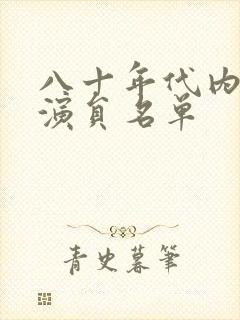 八十年代内
演員名单
青史暮筆